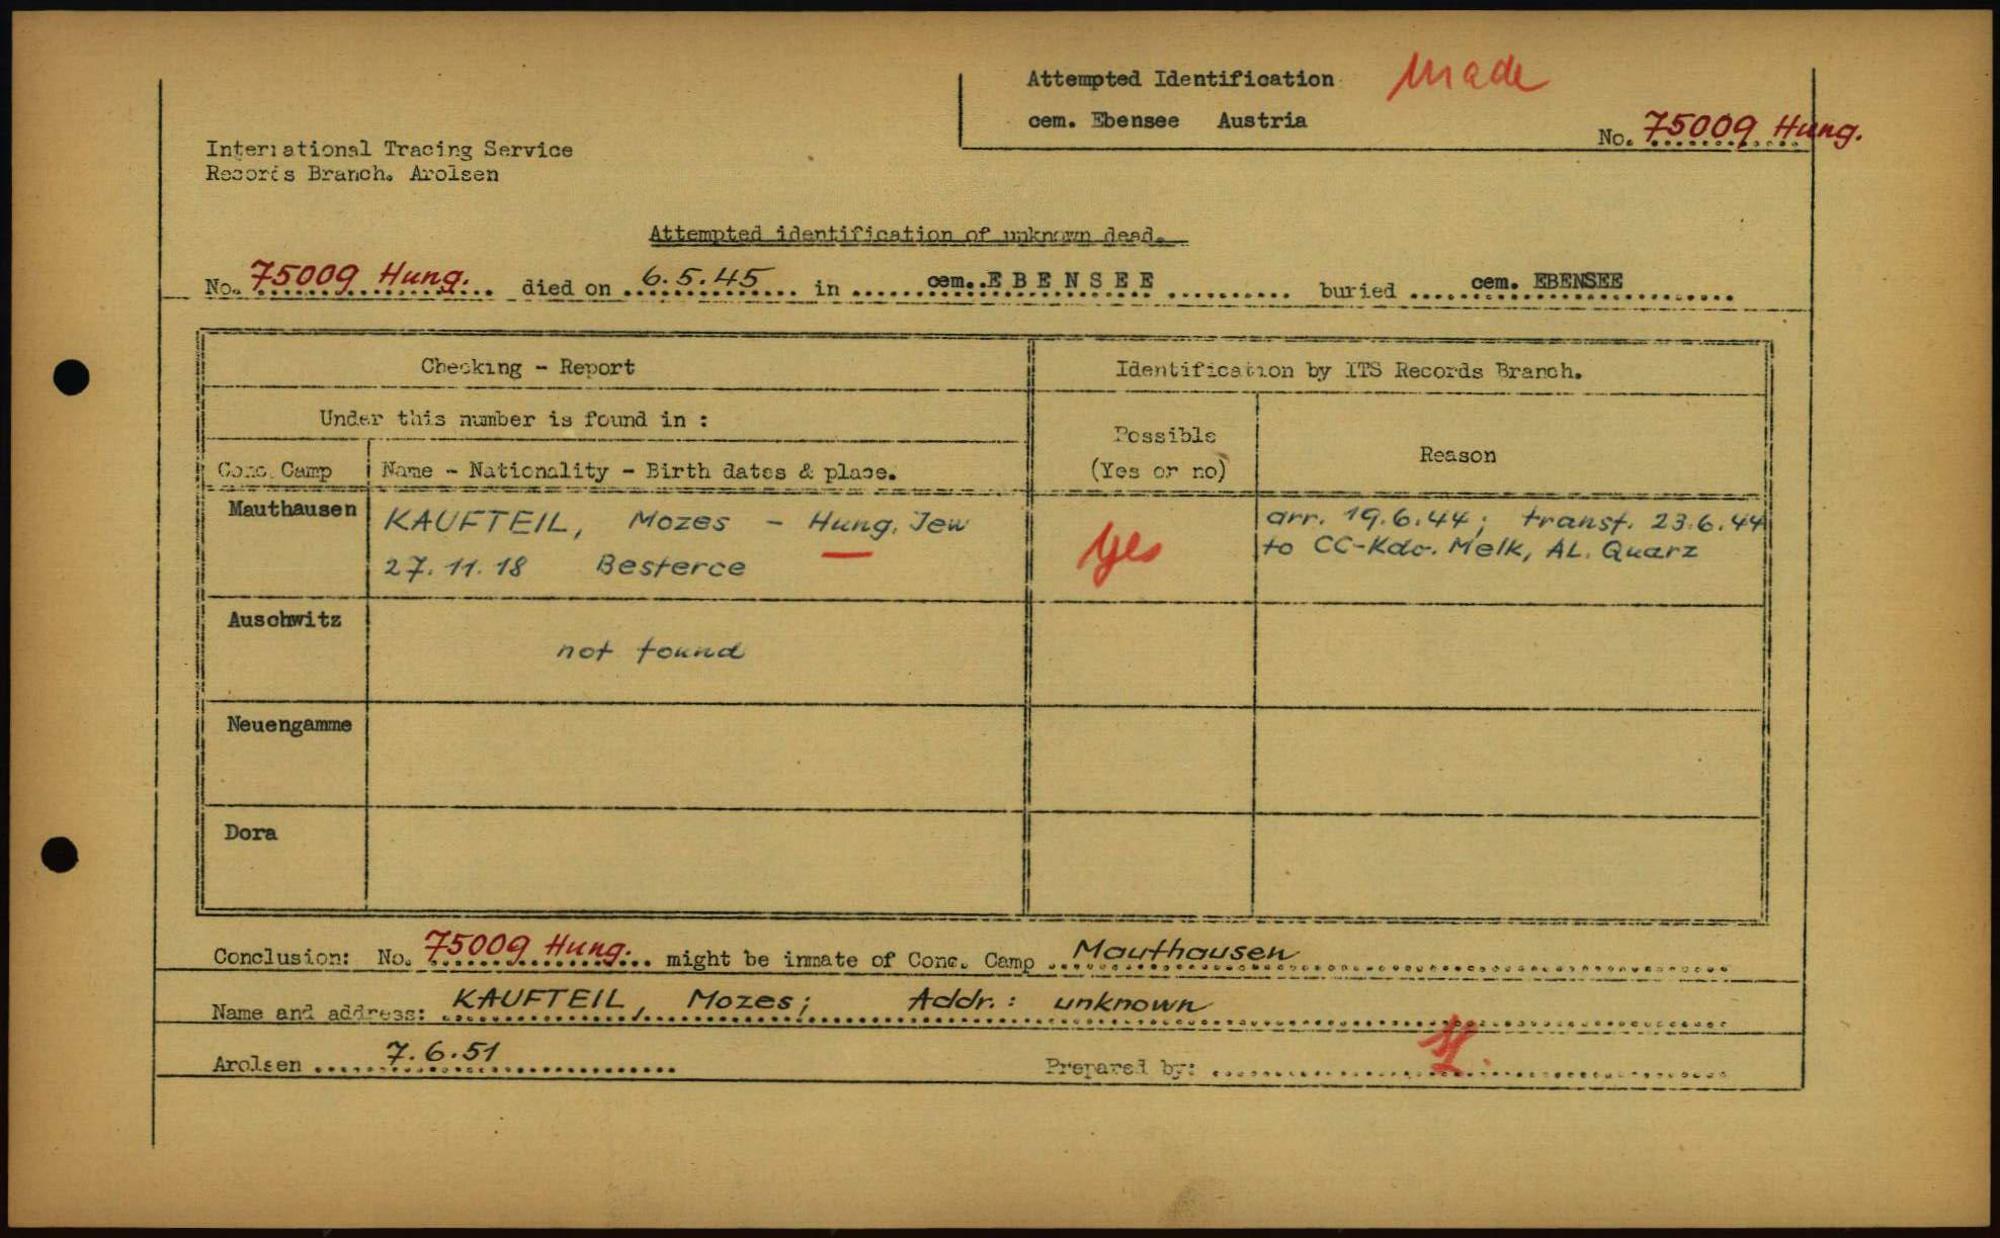 Attempted Identification made
cem. Ebensee Austria
No. 75009 Hung.
International Tracing Service
Records Branch. Arolsen
Attempted identification of unknown dead.
No. 75009 Hung. died on 6.5.45 in cem. E B E N S E E buried cem. EBENSEE
Checking - Report
Identification by ITS Records Branch.
Under this number is found in :
Possible
(Yes or no)
Reason
Conc. Camp Name - Nationality - Birth dates & place.
Mauthausen KAUFTEIL, Mozes - Hung. Jew
27.11.18 Besterce
yes
arr. 19.6.44; transf. 23.6.44
to CC-Kdo. Melk, AL. Quarz
Auschwitz
not found
Neuengamme
Dora
Conclusion: No. 75009 Hung. might be inmate of Conc. Camp Mauthausen
Name and address: KAUFTEIL, Mozes; Addr.: unknown
Arolsen 7.6.51 Prepared by: